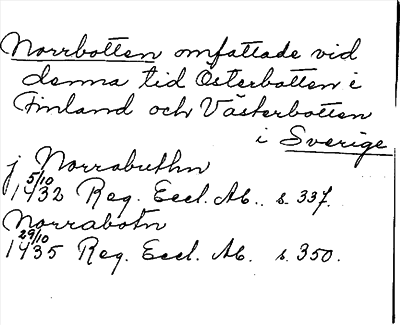 Norrbotten omfattade vid
denna tid Österbotten i
Finland och Västerbotten
i Sverige
j Norrabuthn
5/10
1432 Reg. Eccl. Ab. s. 337.
Norrabotn
29/10
1435 Reg. Eccl. Ab. s. 350.